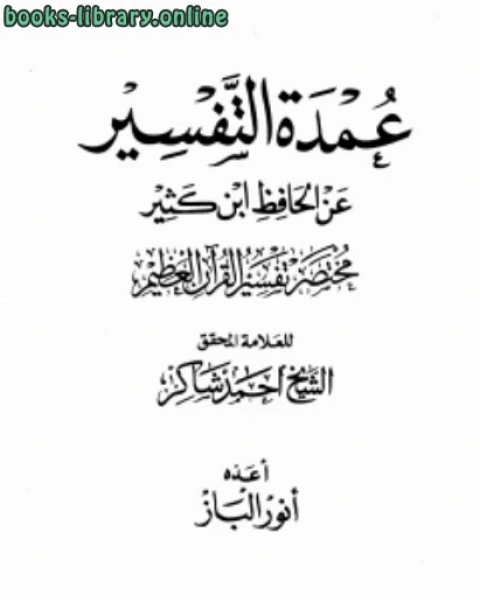 books-library.online
عُمْدَةُ التَّفْسِيْرِ
عَنْ الحَافِظِ ابْنِ كَثِيْر
مُخْتَصَرُ تَفْسِيْرِ القُرْآنِ العَظِيْمِ
للعلامة المحقق
الشيخ أحمد شاكر
أعده
أنور الباز